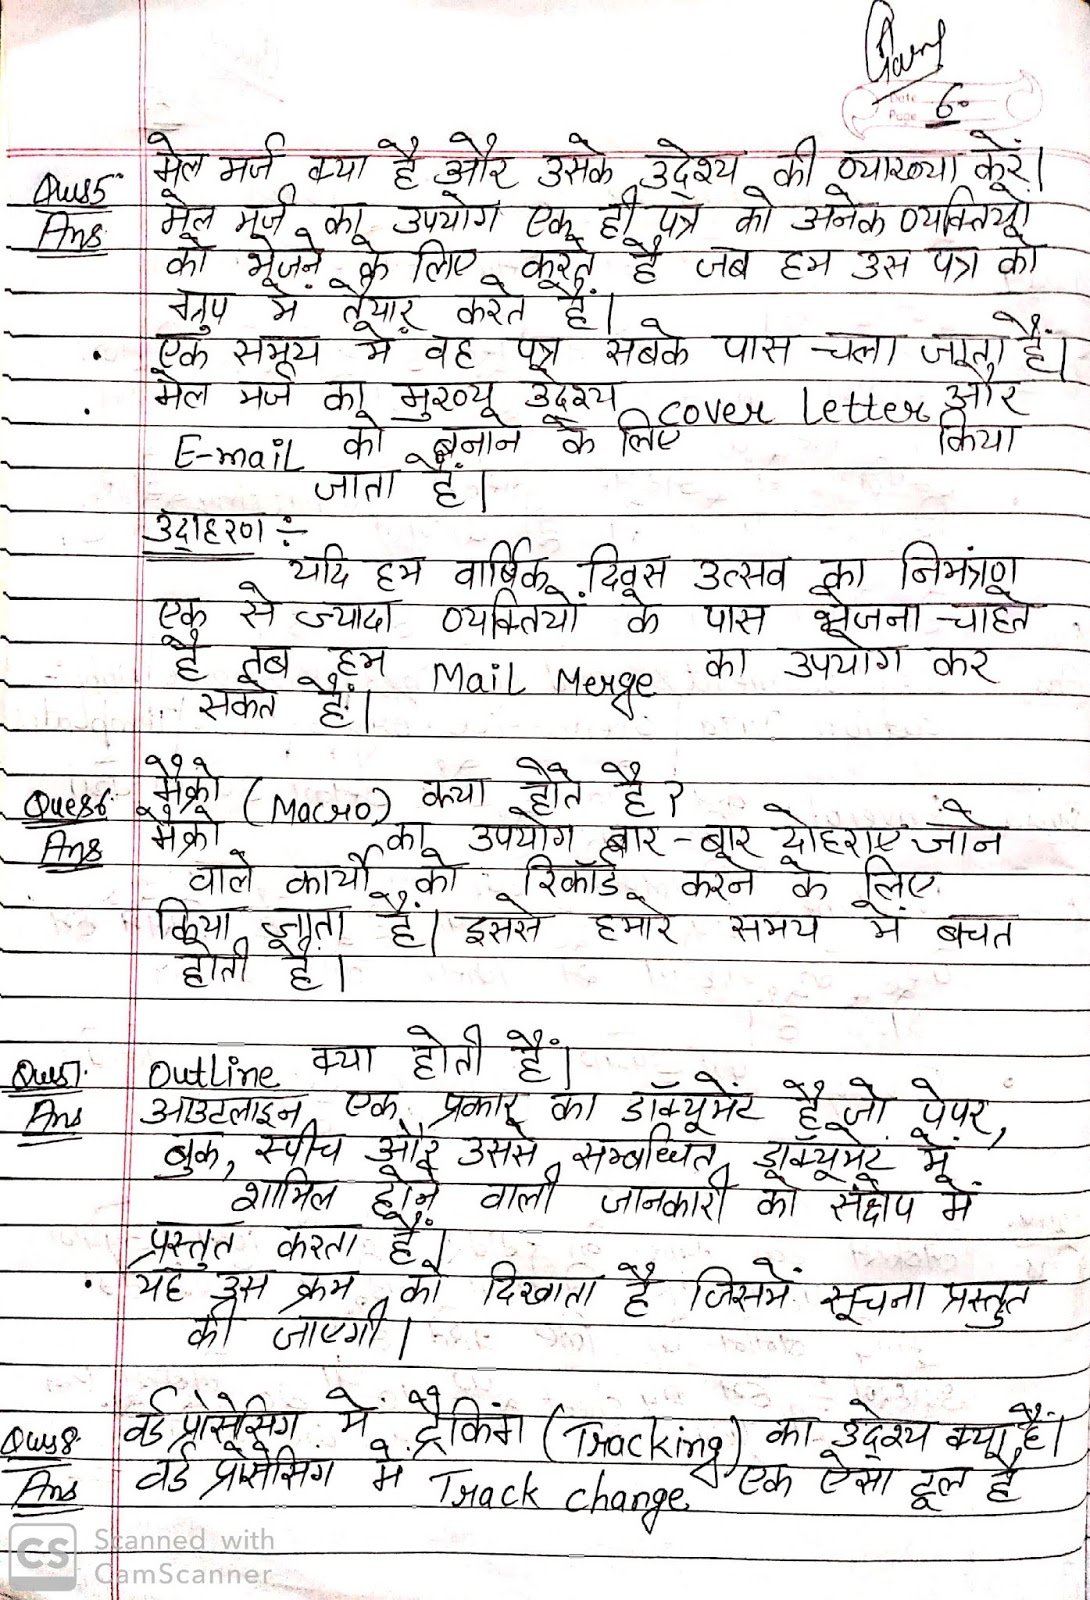 Date
Page 6.
Ques5. मेल मर्ज क्या है और उसके उद्देश्य की व्याख्या करें।
Ans मेल मर्ज का उपयोग एक ही पत्र को अनेक व्यक्तियों
को भेजने के लिए करते है जब हम उस पत्र को
ग्रुप में तैयार करते हैं।
• एक समय में वह पत्र सबके पास चला जाता है।
• मेल मर्ज का मुख्य उद्देश्य cover letter और
E-mail को बनाने के लिए किया
जाता है।
उदाहरण ÷
यदि हम वार्षिक दिवस उत्सव का निमंत्रण
एक से ज्यादा व्यक्तियों के पास भेजना चाहते
है तब हम Mail Merge का उपयोग कर
सकते हैं।
Ques6. मैक्रो (Macro) क्या होते है?
Ans मैक्रो का उपयोग बार-बार दोहराए जाने
वाले कार्यों को रिकॉर्ड करने के लिए
किया जाता हैं। इससे हमारे समय में बचत
होती है।
Ques7. Outline क्या होती हैं।
Ans आउटलाइन एक प्रकार का डॉक्यूमेंट है जो पेपर,
बुक, स्पीच और उससे सम्बधित डॉक्यूमेंट में
शामिल होने वाली जानकारी को संक्षेप में
प्रस्तुत करता हैं।
• यह उस क्रम को दिखाता है जिसमें सूचना प्रस्तुत
की जाएगी।
Ques8. वर्ड प्रोसेसिंग में ट्रैकिंग (Tracking) का उद्देश्य क्या हैं।
Ans वर्ड प्रोसेसिंग में Track change एक ऐसा टूल है
CS Scanned with
CamScanner